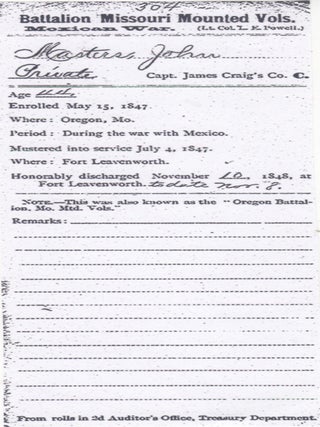 304
Battalion Missouri Mounted Vols.
Mexican War. (Lt. Col. L. K. Powell.)
Masters, John
Private Capt. James Craig's Co. C.
Age 44.
Enrolled May 15, 1847.
Where: Oregon, Mo.
Period: During the war with Mexico.
Mustered into service July 4, 1847.
Where: Fort Leavenworth.
Honorably discharged November 10, 1848, at
Fort Leavenworth. to date Nov. 8.
NOTE.—This was also known as the "Oregon Battal-
ion, Mo. Mtd. Vols."
Remarks:
From rolls in 2d Auditor's Office, Treasury Department.